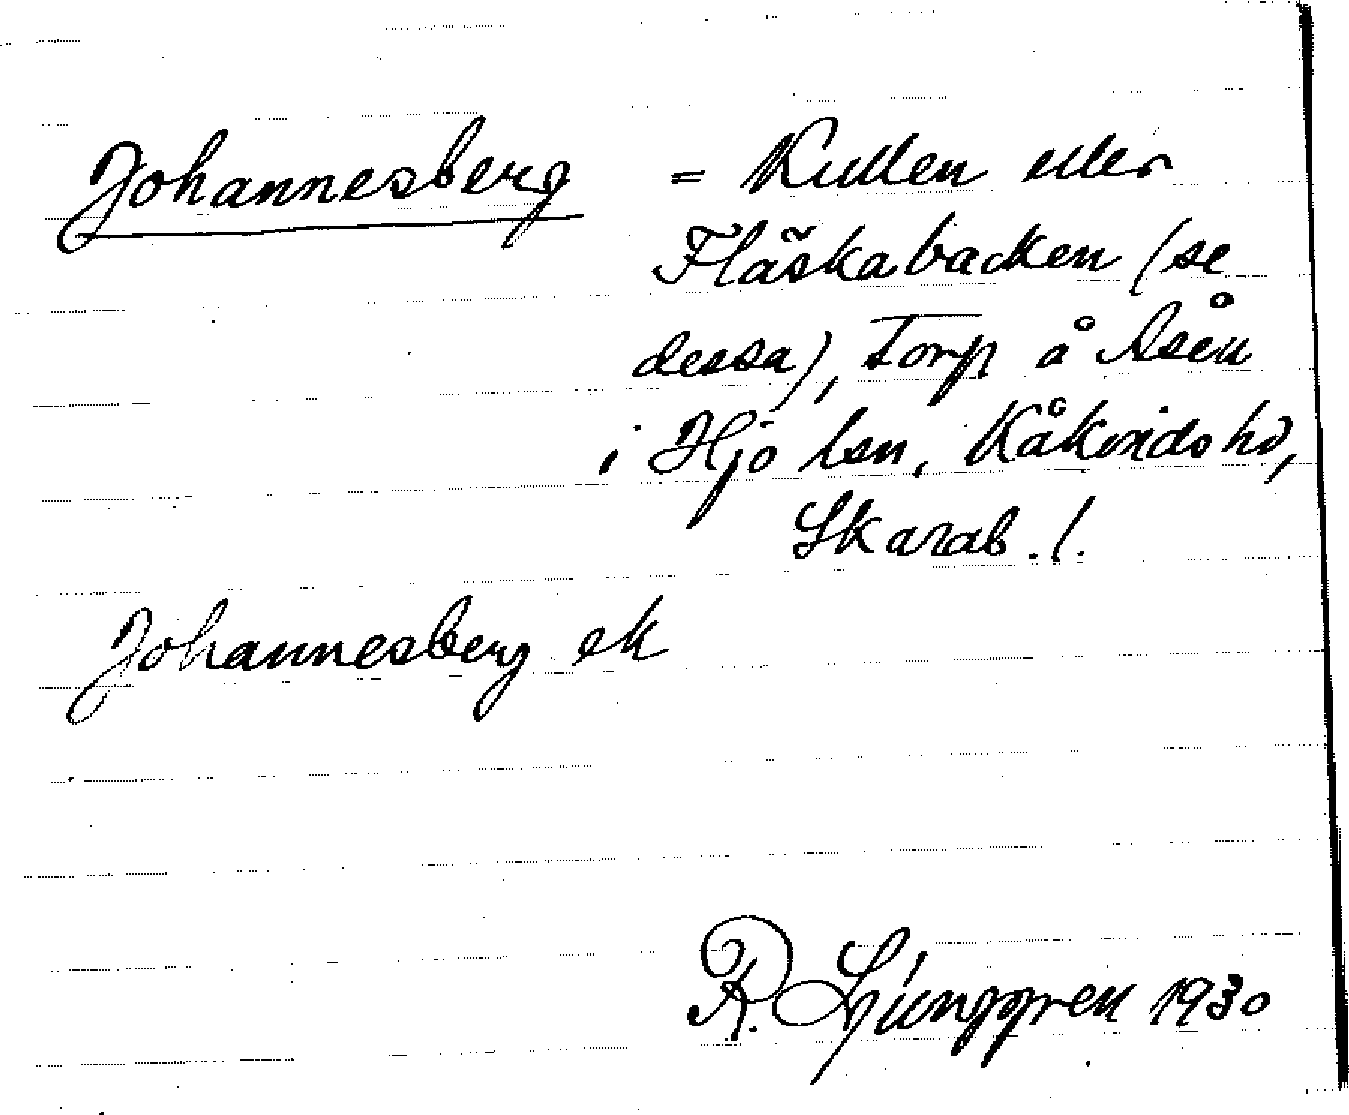 Johannesberg = Kullen eller
Fläskabacken (se
dessa), Torp å Åsen
i Hjo lsn, Kåkinds hd,
Skarab. l.
Johannesberg ek
R. Ljunggren 1930